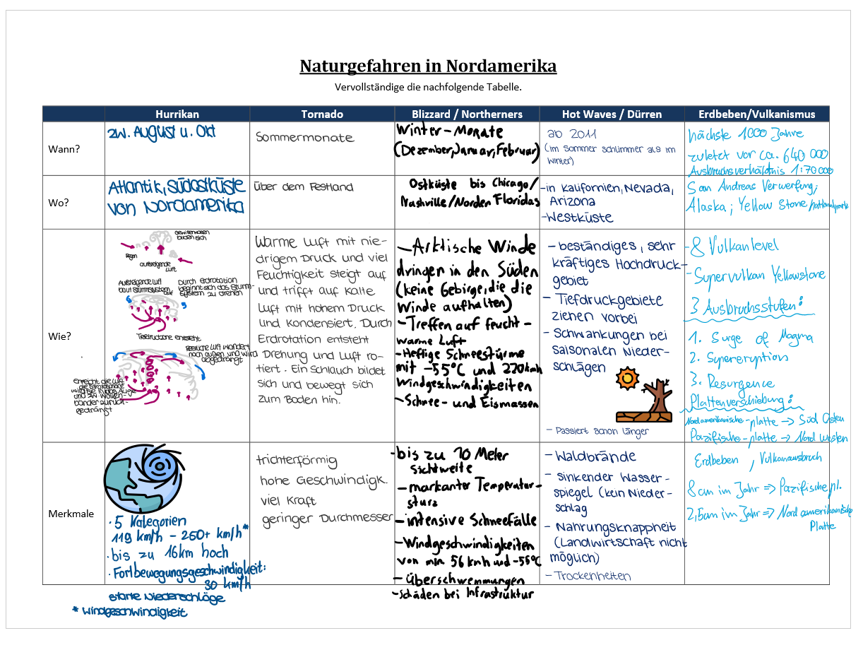 Naturgefahren in Nordamerika
Vervollständige die nachfolgende Tabelle.
Hurrikan
Tornado
Blizzard / Northerners
Hot Waves / Dürren
Erdbeben/Vulkanismus
Wann?
zw. August u. Okt
Sommermonate
Winter-Monate
(Dezember, Januar, Februar)
ab 2011
(im Sommer schlimmer als im
Winter)
nächste 1000 Jahre
zuletzt vor ca. 640 000
Ausbruchsverhältnis 1:70000
Wo?
Atlantik, Südostküste
von Nordamerika
über dem Festland
Ostküste bis Chicago/
Nashville/Norden Floridas
-in Kalifornien, Nevada,
Arizona
-Westküste
San Andreas Verwerfung,
Alaska; Yellow Stone
Wie?
aufsteigende
Luft
Tiefdruckzone entsteht
Warme Luft mit nie-
drigem Druck und viel
Feuchtigkeit steigt auf
und trifft auf kalte
Luft mit hohem Druck
und kondensiert. Durch
Erdrotation entsteht
Drehung und Luft ro-
tiert. Ein Schlauch bildet
sich und bewegt sich
zum Boden hin.
-Arktische Winde
dringen in den Süden
(keine Gebirge, die die
Winde aufhalten)
-Treffen auf feucht-
warme Luft
-Heftige Schneestürme
mit -55°C und 270kmh
Windgeschwindigkeiten
-Schnee- und Eismassen
- beständiges, sehr
kräftiges Hochdruck-
gebiet
- Tiefdruckgebiete
ziehen vorbei
- Schwankungen bei
saisonalen Nieder-
schlägen
- Passiert schon länger
-8 Vulkanlevel
-Supervulkan Yellowstone
3 Ausbruchsstufen:
1. Surge of Magma
2. Supereruption
3. Resurgence
Plattenverschiebung:
Nordamerikanische-platte -> Süd Osten
Pazifische-platte -> Nord Westen
Merkmale
·5 Kategorien
119 km/h - 250+ km/h*
·bis zu 16km hoch
·Fortbewegungsgeschwindigkeit:
30 km/h
starke Niederschläge
* Windgeschwindigkeit
trichterförmig
hohe Geschwindigk.
viel Kraft
geringer Durchmesser
-bis zu 10 Meter
Sichtweite
-markanter Temperatur-
sturz
-intensive Schneefälle
-Windgeschwindigkeiten
von min. 56 kmh und -55°C
-Überschwemmungen
-Schäden bei Infrastruktur
- Waldbrände
- sinkender Wasser-
spiegel (kein Nieder-
schlag
- Nahrungsknappheit
(Landwirtschaft nicht
möglich)
- Trockenheiten
Erdbeben, Vulkanausbruch
8cm im Jahr => Pazifische pl.
2,5cm im Jahr => Nord amerikanische
Platte